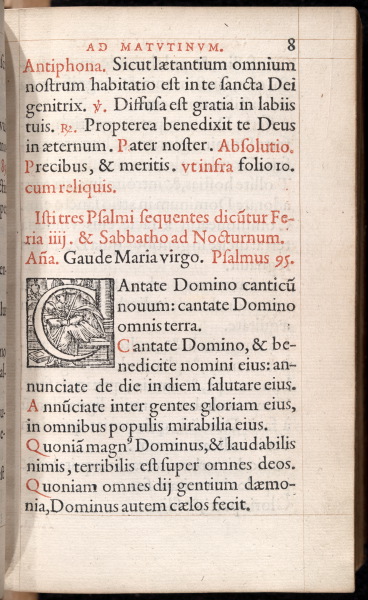 AD MATVTINVM. 8
Antiphona. Sicut lætantium omnium
nostrum habitatio est in te sancta Dei
genitrix. ℣. Diffusa est gratia in labiis
tuis. ℟. Propterea benedixit te Deus
in æternum. Pater noster. Absolutio.
Precibus, & meritis. vt infra folio 10.
cum reliquis.
Isti tres Psalmi sequentes dicũtur Fe-
ria iiij. & Sabbatho ad Nocturnum.
Aña. Gaude Maria virgo. Psalmus 95.
CAntate Domino canticũ
nouum: cantate Domino
omnis terra.
Cantate Domino, & be-
nedicite nomini eius: an-
nunciate de die in diem salutare eius.
Annũciate inter gentes gloriam eius,
in omnibus populis mirabilia eius.
Quoniã magnꝰ Dominus, & laudabilis
nimis, terribilis est super omnes deos.
Quoniam omnes dij gentium dæmo-
nia, Dominus autem cælos fecit.